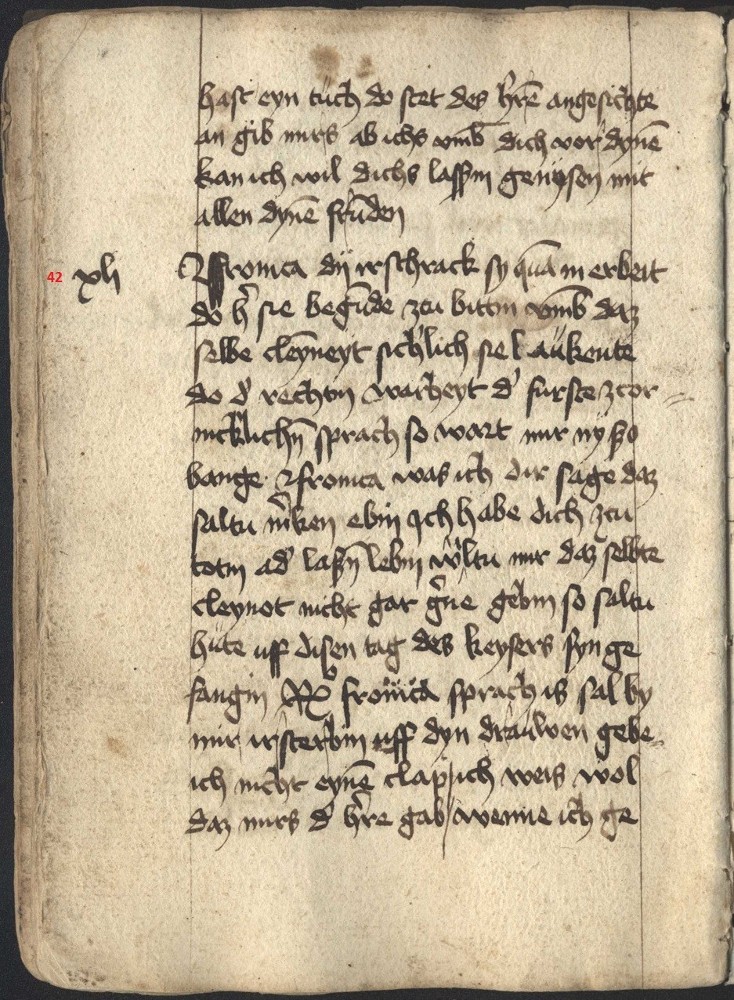 hast eyn tuch do stet des h̄rē angesichte
an gib mirs ab ichs vmb dich vordynē
kan ich wil dichs lassin genysen mit
allen dynē frūden
42 xlij Vfronica dy irschrack sy quā in erbeit
do h̄ sie begūde zcu bittin vmb daz
selbe cleyneyt sichlich sie laukente
do d' rechtin warheyt d' furste zcor=
nicklichn̄ sprach so wart mir ny so
bange Vfronica was ich dir sage daz
saltu m̄ken ebin Ich habe dich zcu
totin ad' lassn̄ lebin wiltu mir daz selbte
cleynot nicht gar ḡne gebin so saltu
hute uff disen tag des keysers syn ge
fangin fronica sprach is sal by
mir irsterbin uff dyn drauwen gebe
ich nicht eynē clap ich weis wol
daz mirs d' h̄re gab wenne ich ge